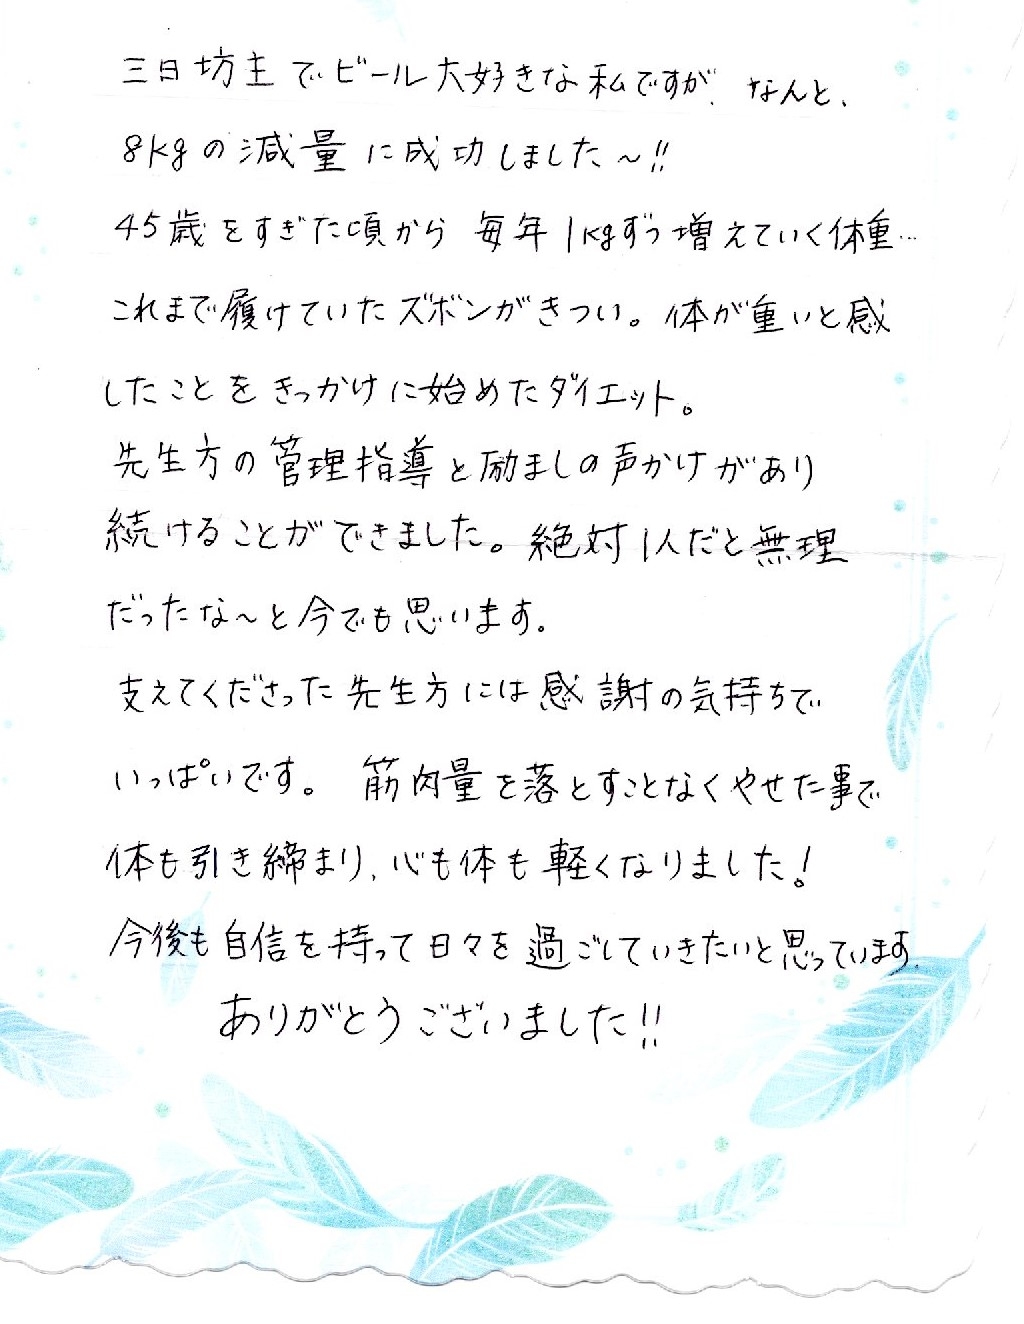 三日坊主でビール大好きな私ですが、なんと、
8kgの減量に成功しました〜!!
45歳をすぎた頃から 毎年1kgずつ増えていく体重…
これまで履けていたズボンがきつい。体が重いと感
したことをきっかけに始めたダイエット。
先生方の管理指導と励ましの声かけがあり
続けることができました。絶対1人だと無理
だったな〜と今でも思います。
支えてくださった先生方には感謝の気持ちで
いっぱいです。 筋肉量を落とすことなくやせた事で
体も引き締まり、心も体も軽くなりました!
今後も自信を持って日々を過ごしていきたいと思っています。
ありがとうございました!!